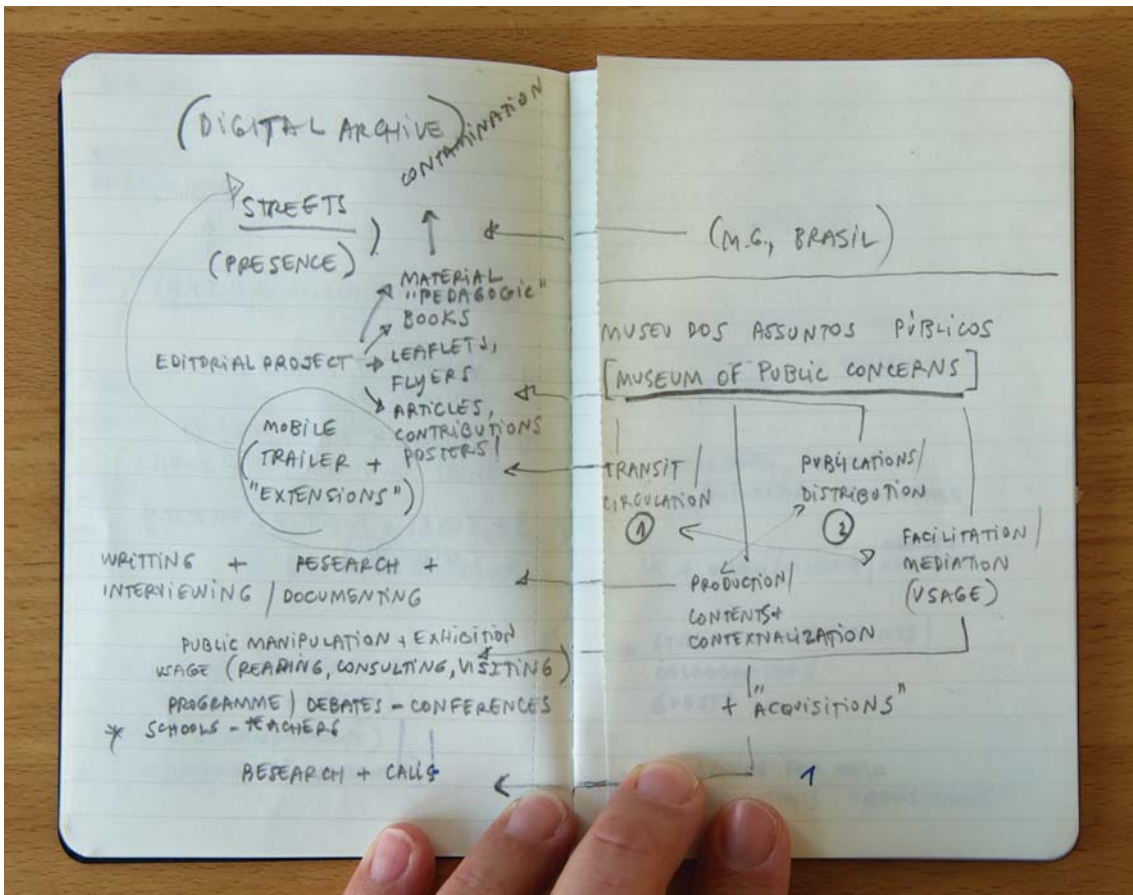 (DIGITAL ARCHIVE)
CONTAMINATION
STREETS
(PRESENCE)
MATERIAL
"PEDAGOGIC"
BOOKS
EDITORIAL PROJECT
LEAFLETS,
FLYERS
ARTICLES,
CONTRIBUTIONS
POSTERS/
MOBILE
(TRAILER +
"EXTENSIONS")
WRITTING + RESEARCH +
INTERVIEWING / DOCUMENTING
PUBLIC MANIPULATION + EXHIBITION
USAGE (READING, CONSULTING, VISITING)
PROGRAMME / DEBATES - CONFERENCES
* SCHOOLS - TEACHERS
RESEARCH + CALLS
(M.G., BRASIL)
MUSEU DOS ASSUNTOS PÚBLICOS
[MUSEUM OF PUBLIC CONCERNS]
TRANSIT /
CIRCULATION
1
PUBLICATIONS/
DISTRIBUTION
FACILITATION/
MEDIATION
(USAGE)
PRODUCTION/
CONTENTS+
CONTEXTNALIZATION
+ "ACQUISITIONS"
1